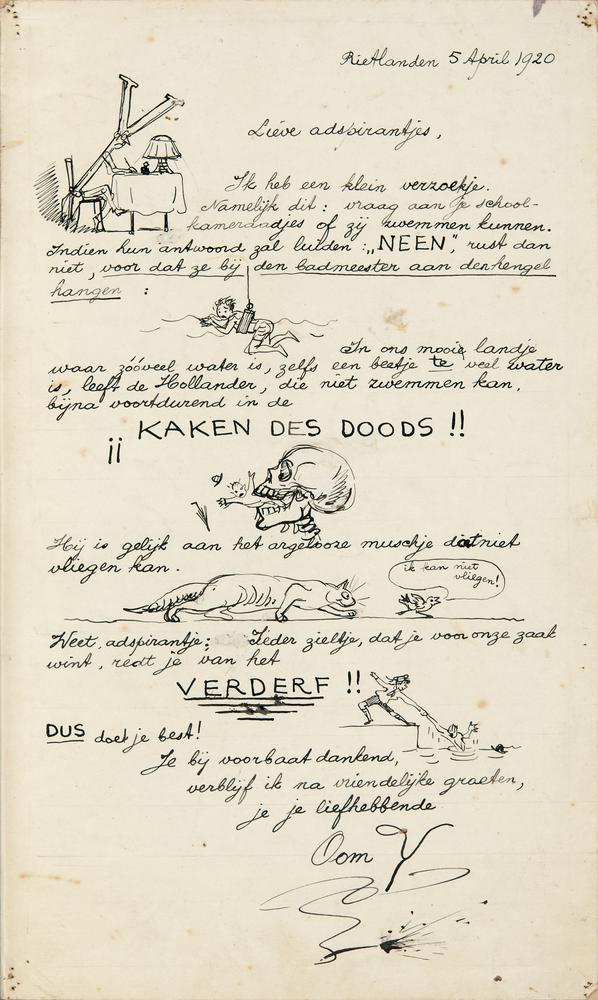 Rietlanden 5 April 1920
Lieve adspirantjes,
Ik heb een klein verzoekje.
Namelijk dit: vraag aan je school-
kameraadjes of zij zwemmen kunnen.
Indien hun antwoord zal luiden: „NEEN", rust dan
niet, voor dat ze bij den badmeester aan den hengel
hangen :
In ons mooie landje
waar zóóveel water is, zelfs een beetje te veel water
is, leeft de Hollander, die niet zwemmen kan,
bijna voortdurend in de
¡¡ KAKEN DES DOODS !!
Hij is gelijk aan het argelooze muschje dat niet
vliegen kan.
ik kan niet
vliegen!
Weet, adspirantje: Ieder zieltje, dat je voor onze zaak
wint, redt je van het
VERDERF !!
DUS doet je best!
Je bij voorbaat dankend,
verblijf ik na vriendelijke groeten,
je je liefhebbende
Oom Y